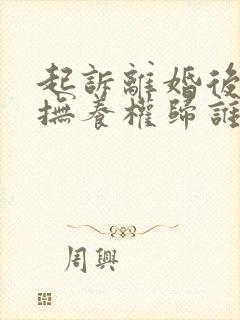 起訴離婚後
撫養權歸誰
周興